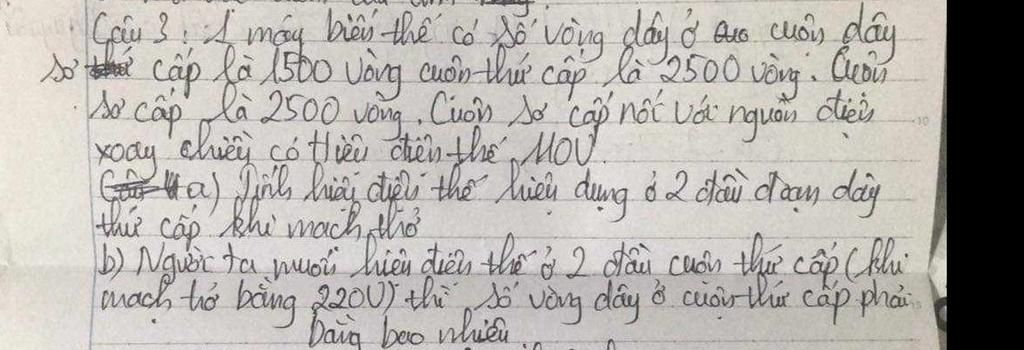 Câu 3: 1 máy biến thế có số vòng dây ở cuôn dây
sơ cấp là 1500 vòng cuôn thứ cấp là 2500 vòng. Cuôn
sơ cấp là 2500 vòng. Cuôn sơ cấp nối với nguồn điện
xoay chiều có hiêu điên thế 110V.
a) Tính hiêu điên thế hiêu dung ở 2 đầu đoan dây
thứ cấp khi mach thở
b) Người ta muốn hiêu điên thế ở 2 đầu cuôn thứ cấp (khi
mach hở bằng 220V) thì số vòng dây ở cuôn thứ cấp phải
bằng bao nhiêu